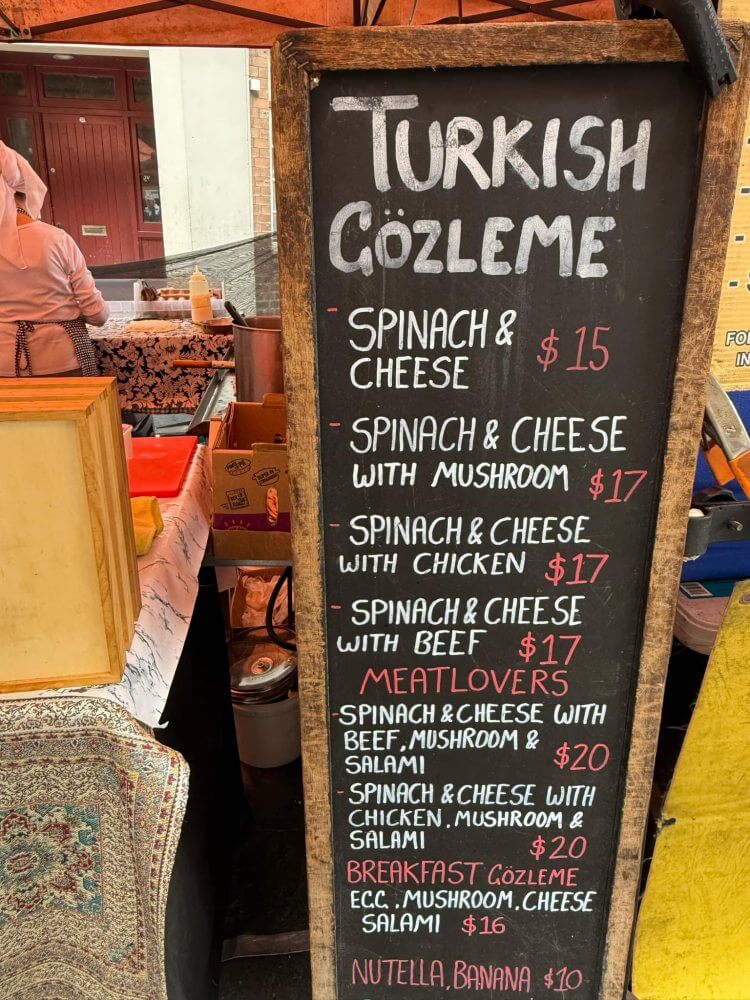 TURKISH
GÖZLEME
- SPINACH &
CHEESE $15
- SPINACH & CHEESE
WITH MUSHROOM $17
- SPINACH & CHEESE
WITH CHICKEN $17
- SPINACH & CHEESE
WITH BEEF $17
MEATLOVERS
- SPINACH & CHEESE WITH
BEEF, MUSHROOM &
SALAMI $20
- SPINACH & CHEESE WITH
CHICKEN, MUSHROOM &
SALAMI $20
BREAKFAST GÖZLEME
EGG, MUSHROOM, CHEESE
SALAMI $16
NUTELLA, BANANA $10